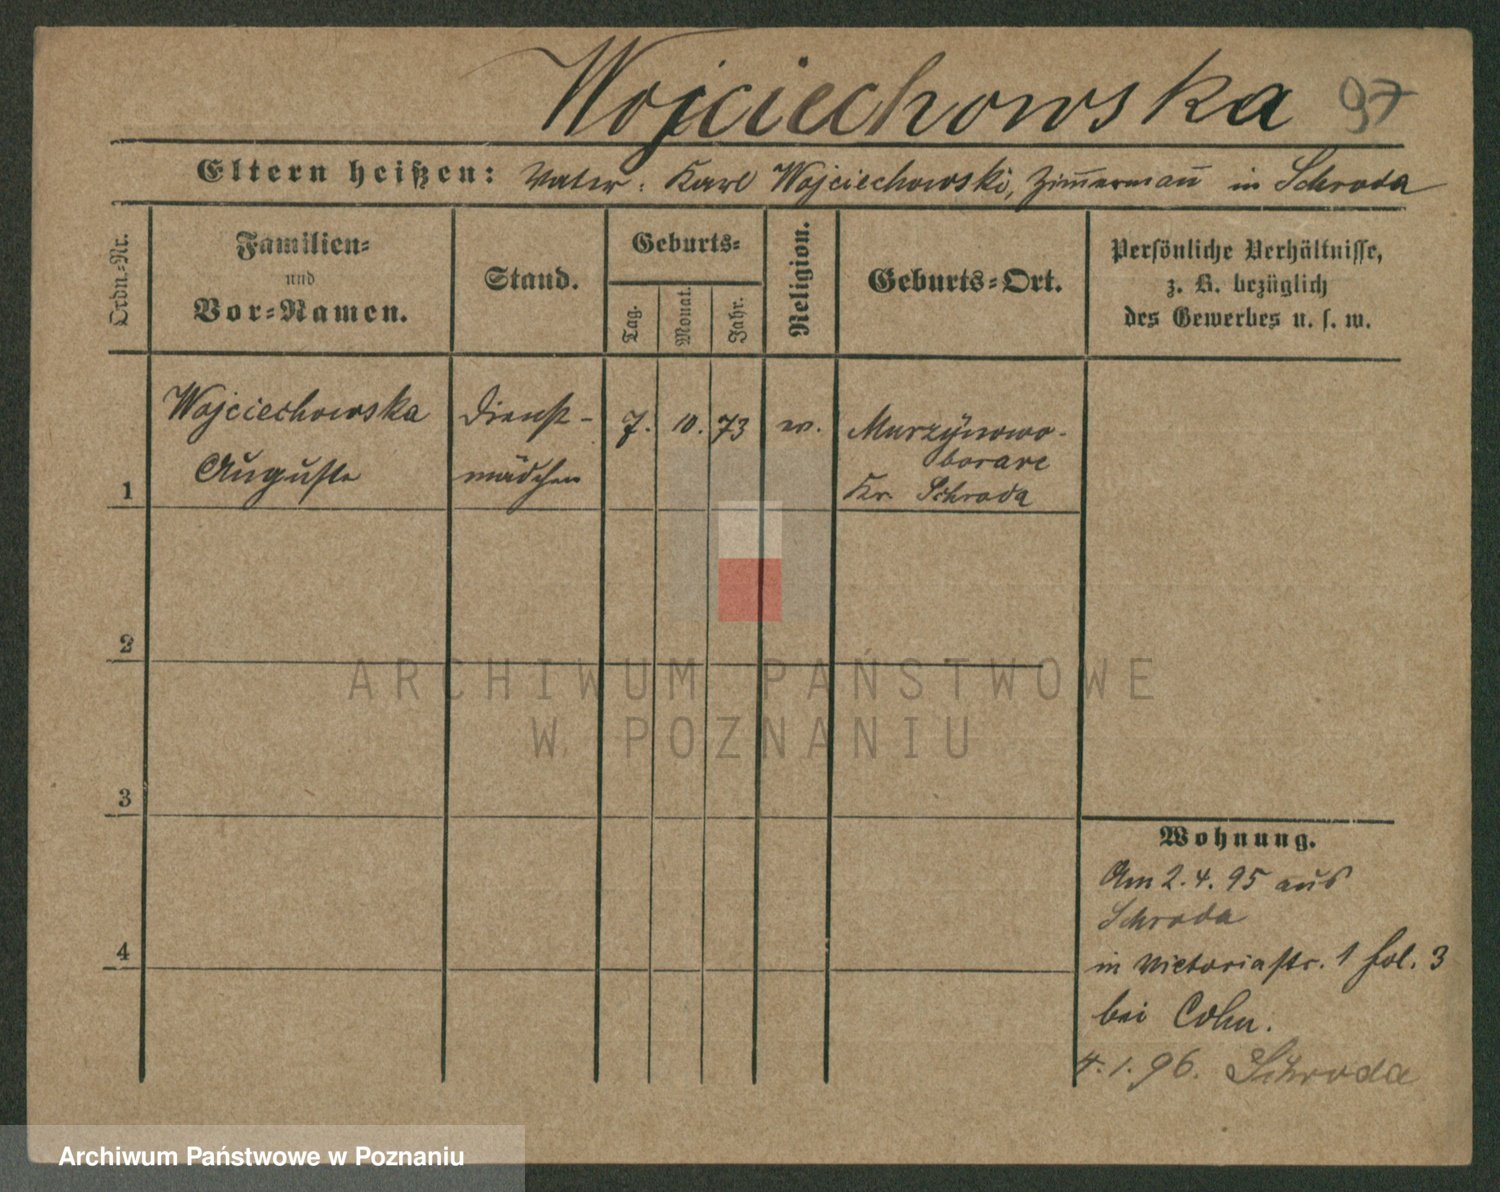 Wojciechowska 97
Eltern heißen: Vater: Karl Wojciechowski, Zimmermann in Schroda
Ordn.-Nr.
Familien-
und
Vor-Namen.
Stand.
Geburts-
Tag.
Monat.
Jahr.
Religion.
Geburts-Ort.
Persönliche Verhältnisse,
z. B. bezüglich
des Gewerbes u. s. w.
Wojciechowska
Auguste
Dienst-
mädchen
7. 10. 73 ev.
Murzÿnowo-
borare
Kr. Schroda
1
2
3
4
Wohnung.
Am 2. 4. 95 aus
Schroda
in Victoriastr. 1 fol. 3
bei Cohn.
4. 1. 96. Schroda
ARCHIWUM PAŃSTWOWE
W POZNANIU
Archiwum Państwowe w Poznaniu